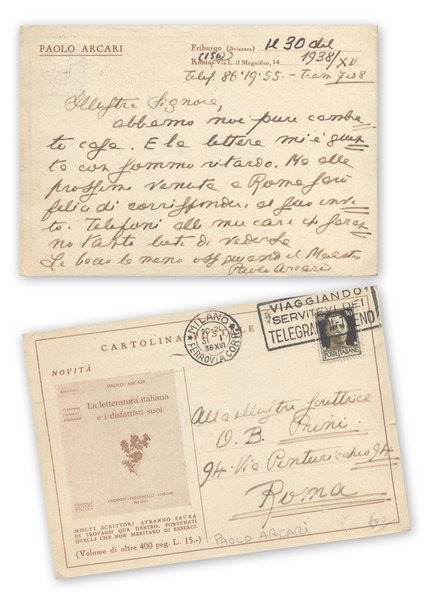 PAOLO ARCARI
Friburgo (Svizzera) il 30 del
(150) 1938/XV
Roma, Via L. il Magnifico, 14
Telef. 86-19-55 - tram 7 o 8
Illustre Signora,
abbiamo noi pure cambia-
to casa. E la lettera mi è giun-
ta con sommo ritardo. Ma alla
prossima venuta a Roma sarò
felice di corrispondere al suo invi-
to. Telefoni alle mie care che saran-
no tanto liete di vederLa
Le bacio la mano ossequiando il Maestro
Paolo Arcari
CARTOLINA
NOVITÀ
PAOLO ARCARI
La letteratura italiana
e i disfattisti suoi
MOLTI SCRITTORI AVRANNO PAURA
DI TROVARSI QUA DENTRO, FORTUNATI
QUELLI CHE NON MERITANO DI ESSERCE
(Volume di oltre 400 pag. L. 15.-)
MILANO
20-21
31 1
38 XVI
FERROVIA CORR.
VIAGGIANDO
SERVITEVI DEI
TELEGRAMMI TRENO
POSTE ITALIANE
Alla illustre scrittrice
O. B. Prini
94 Via Pinturicchio 94
Roma
PAOLO ARCARI